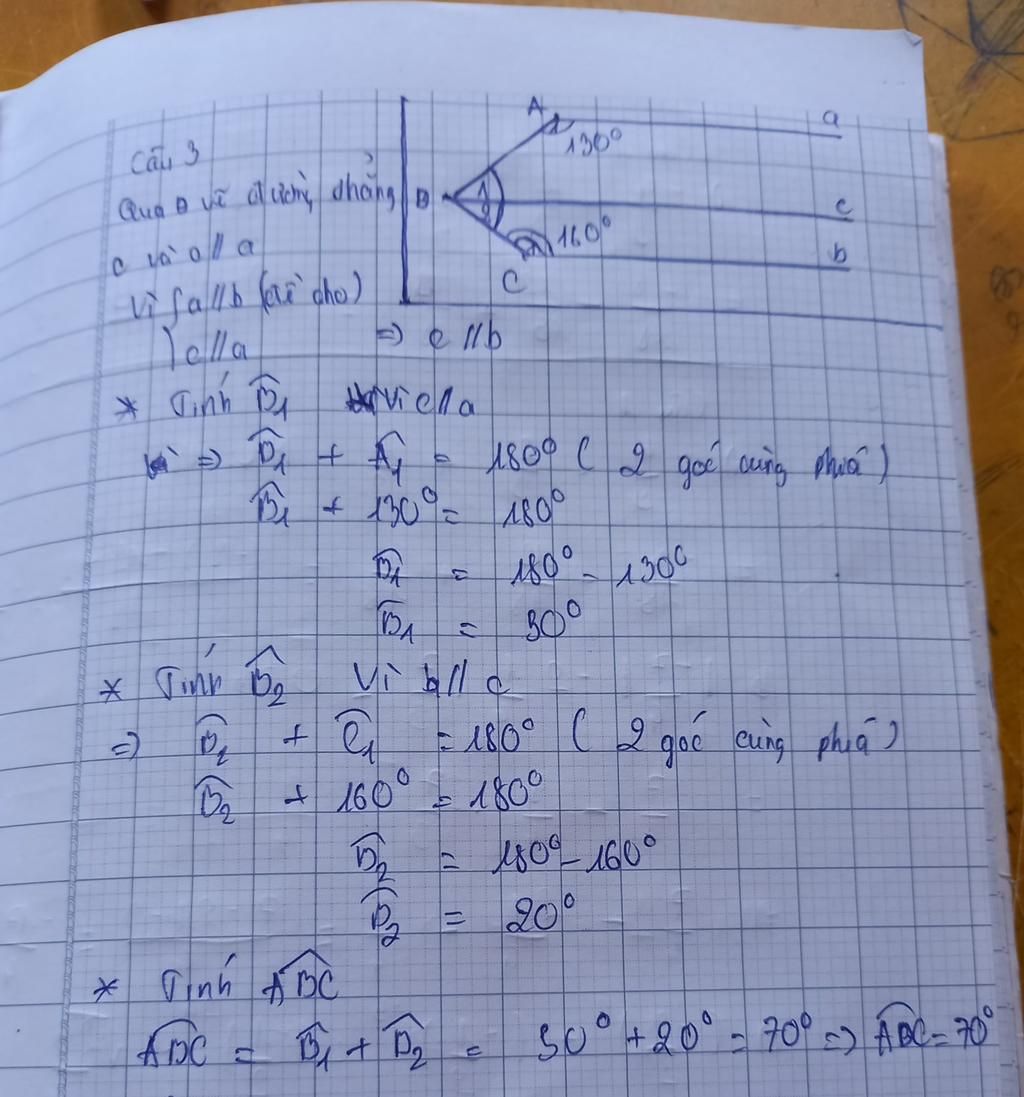 A a
130°
B 1 c
160°
C b
Câu 3
Qua B vẽ đường thẳng
c và c // a
Vì { a // b (đề cho)
c // a => c // b
* Tính B̂1 Vì c // a
=> B̂1 + Â1 = 180° ( 2 góc cùng phía )
B̂1 + 130° = 180°
B̂1 = 180° - 130°
B̂1 = 50°
* Tính B̂2 Vì b // c
=> B̂2 + Ĉ1 = 180° ( 2 góc cùng phía )
B̂2 + 160° = 180°
B̂2 = 180° - 160°
B̂2 = 20°
* Tính ABĈ
ABĈ = B̂1 + B̂2 = 50° + 20° = 70° => ABĈ = 70°